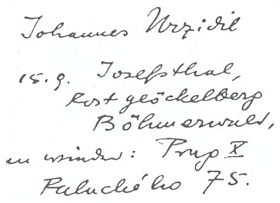 Johannes Urzidil
15.9. Josefsthal,
Post Glöckelberg
Böhmerwald,
im Winter: Prag X
Palackého 75.